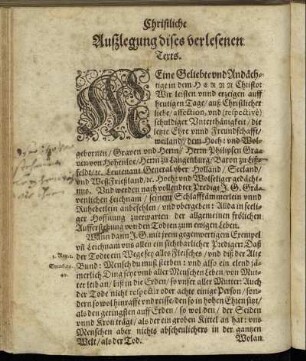 Christliche
Außlegung dises verlesenen
Texts.
Meine Geliebte vnd Andäch-
tige in dem HERRN Christo:
Wir leisten vnnd erzeigen auff
heutigen Tage, auß Christlicher
liebe, affection, vnd (respectivè)
schuldiger Vnterthänigkeit, die
legte Ehre vnnd Freundschafft,
weiland dem Hoch: vnd Wol-
gebornen, Graven vnd Herrn, Herrn Philipsen Gra-
ven von Hohenloe, Herrn zu Langenburg, Baron zu
Leutenant General vber Holland, Seeland,
vnd West Frießland, Hoch: vnd Wolseliger
Vnd werden nach vollendter Predigt J. G. Grä-
venlichen Leichnam, seinem Schlaffkämmerlein vnnd
Ruhebetlein anbefehlen, vnd vbergeben: Allda in seeli-
ger Hoffnung zuwarten der allgemeinen frölichen
Aufferstehung von den Todten zum ewigen Leben.
Wann dann J. G. mit jrem gegenwertigen Exempel
vñ Leichnam vns allen ein sichtbarlicher Prediger, Daß
der Todt ein Weg sey alles Fleisches, vnd diß der Alte
Bund: Mensch du must sterben: vnd also ein elend jäm-
merlich Ding seye vmb aller Menschen Leben, von Mut-
ter leib an, biß in die Erden, so vnser aller Mutter: Auch
der Todt nicht respectir oder achte einige Person, son-
dern so wol hinraffe vnd reisse den so in hohen Ehren sitzt,
als den geringsten auff Erden, so wol den, der Seiden
vnnd Kron trägt, als der ein groben Kittel an hat: vns
Menschen aber nichts abscheulichers in der gantzen
Welt, als der Tod.
Wolan.